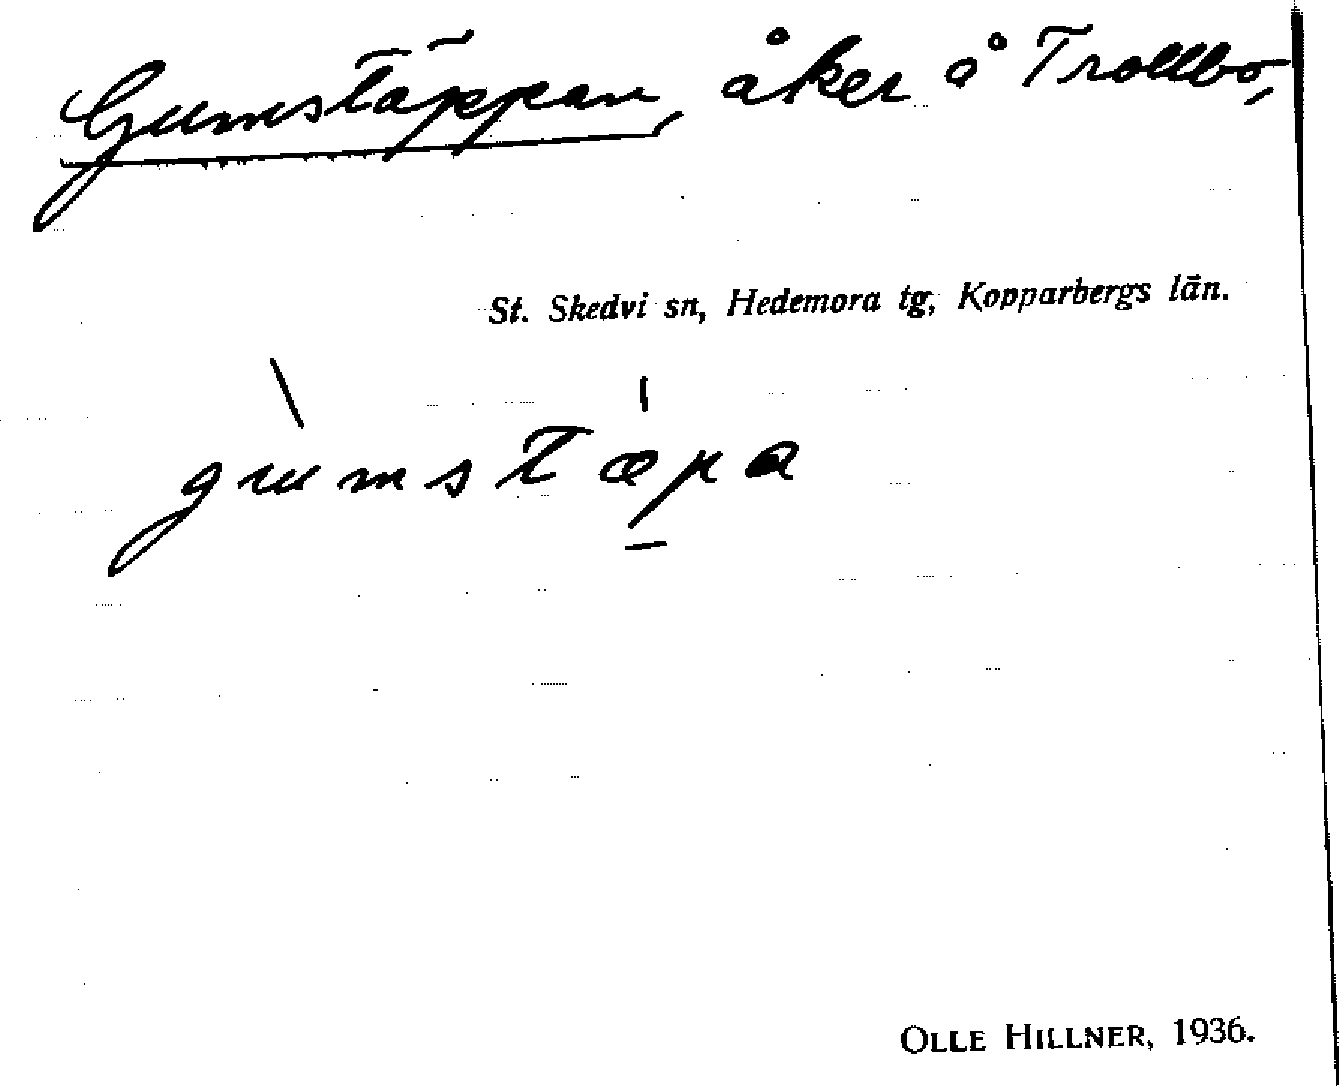 Gumstäppan, åker å Trollbo,
St. Skedvi sn, Hedemora tg, Kopparbergs län.
gùmstæ̍p̱a
OLLE HILLNER, 1936.